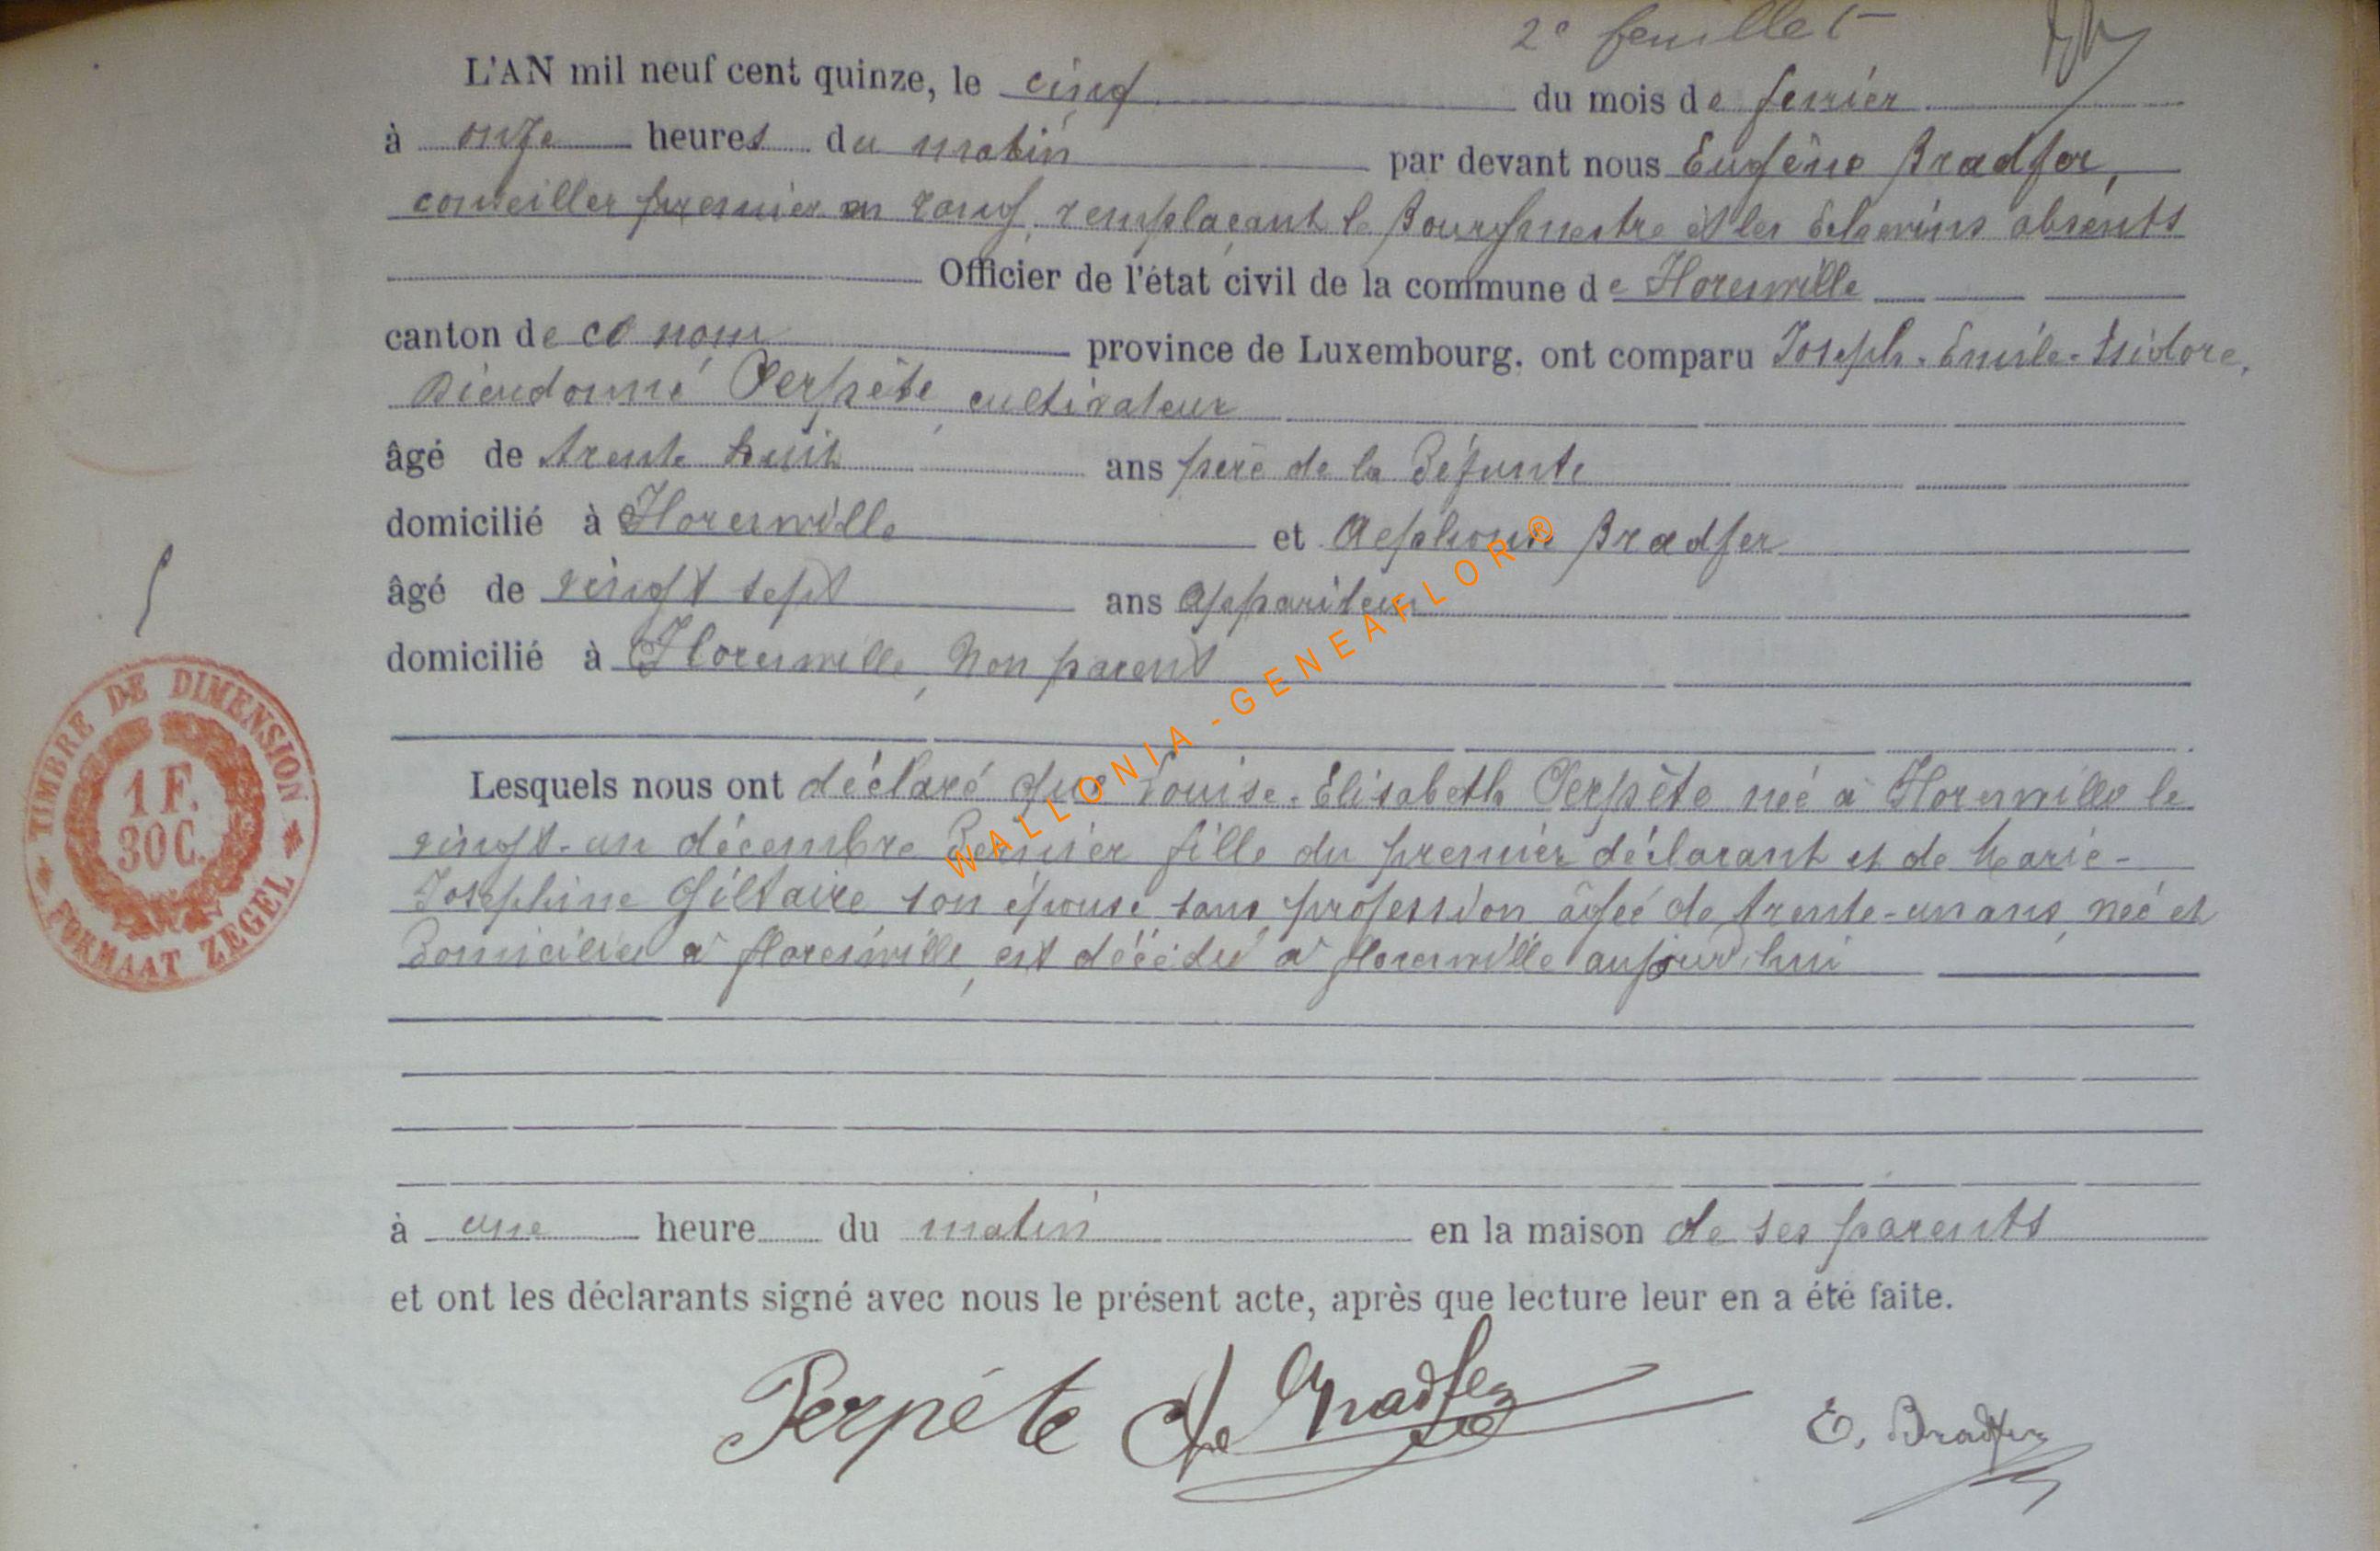 2e feuillet
L'AN mil neuf cent quinze, le cinq du mois de fevrier
à onze heures du matin par devant nous Eugène Bradfer,
conseiller premier en rang, remplaçant le Bourgmestre et les Echevins absents
Officier de l'état civil de la commune de Florenville
canton de ce nom province de Luxembourg, ont comparu Joseph-Emile-Isidore,
Dieudonné Perpète, cultivateur
âgé de trente huit ans père de la Défunte
domicilié à Florenville et Alphonse Bradfer
âgé de vingt sept ans appariteur
domicilié à Florenville, Non parent
Lesquels nous ont déclaré que Louise-Elisabeth Perpète née à Florenville le
vingt-un décembre Dernier fille du premier déclarant et de Marie-
Josephine Giltaire son épouse sans profession âgée de trente-un ans, née et
Domiciliée à Florenville, est décédée à Florenville aujourd'hui
à une heure du matin en la maison de ses parents
et ont les déclarants signé avec nous le présent acte, après que lecture leur en a été faite.
Perpète Bradfer E. Bradfer
TIMBRE DE DIMENSION
1 F.
30 C.
FORMAAT ZEGEL
WALLONIA - GENEAFLOR ®